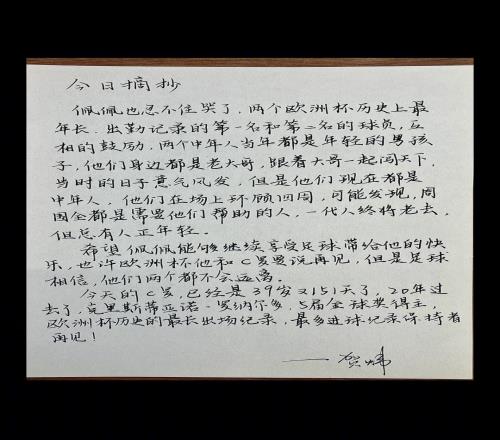 今日摘抄
佩佩也忍不住哭了，两个欧洲杯历史上最
年长、出勤记录的第一名和第二名的球员，互
相的鼓励，两个中年人当年都是年轻的男孩
子，他们身边都是老大哥，跟着大哥一起闯天下，
当时的日子意气风发，但是他们现在都是
中年人，他们在场上环顾四周，可能发现，周
围全都是需要他们帮助的人，一代人终将老去，
但总有人正年轻。
希望佩佩能够继续享受足球带给他的快
乐，也许欧洲杯他和C罗要说再见，但是足球
相信，他们两个都不会远离。
今天的C罗，已经是39岁又151天了，20年过
去了，克里斯蒂亚诺·罗纳尔多，5届金球奖得主，
欧洲杯历史的最长出场纪录，最多进球纪录保持者
再见！
——贺炜